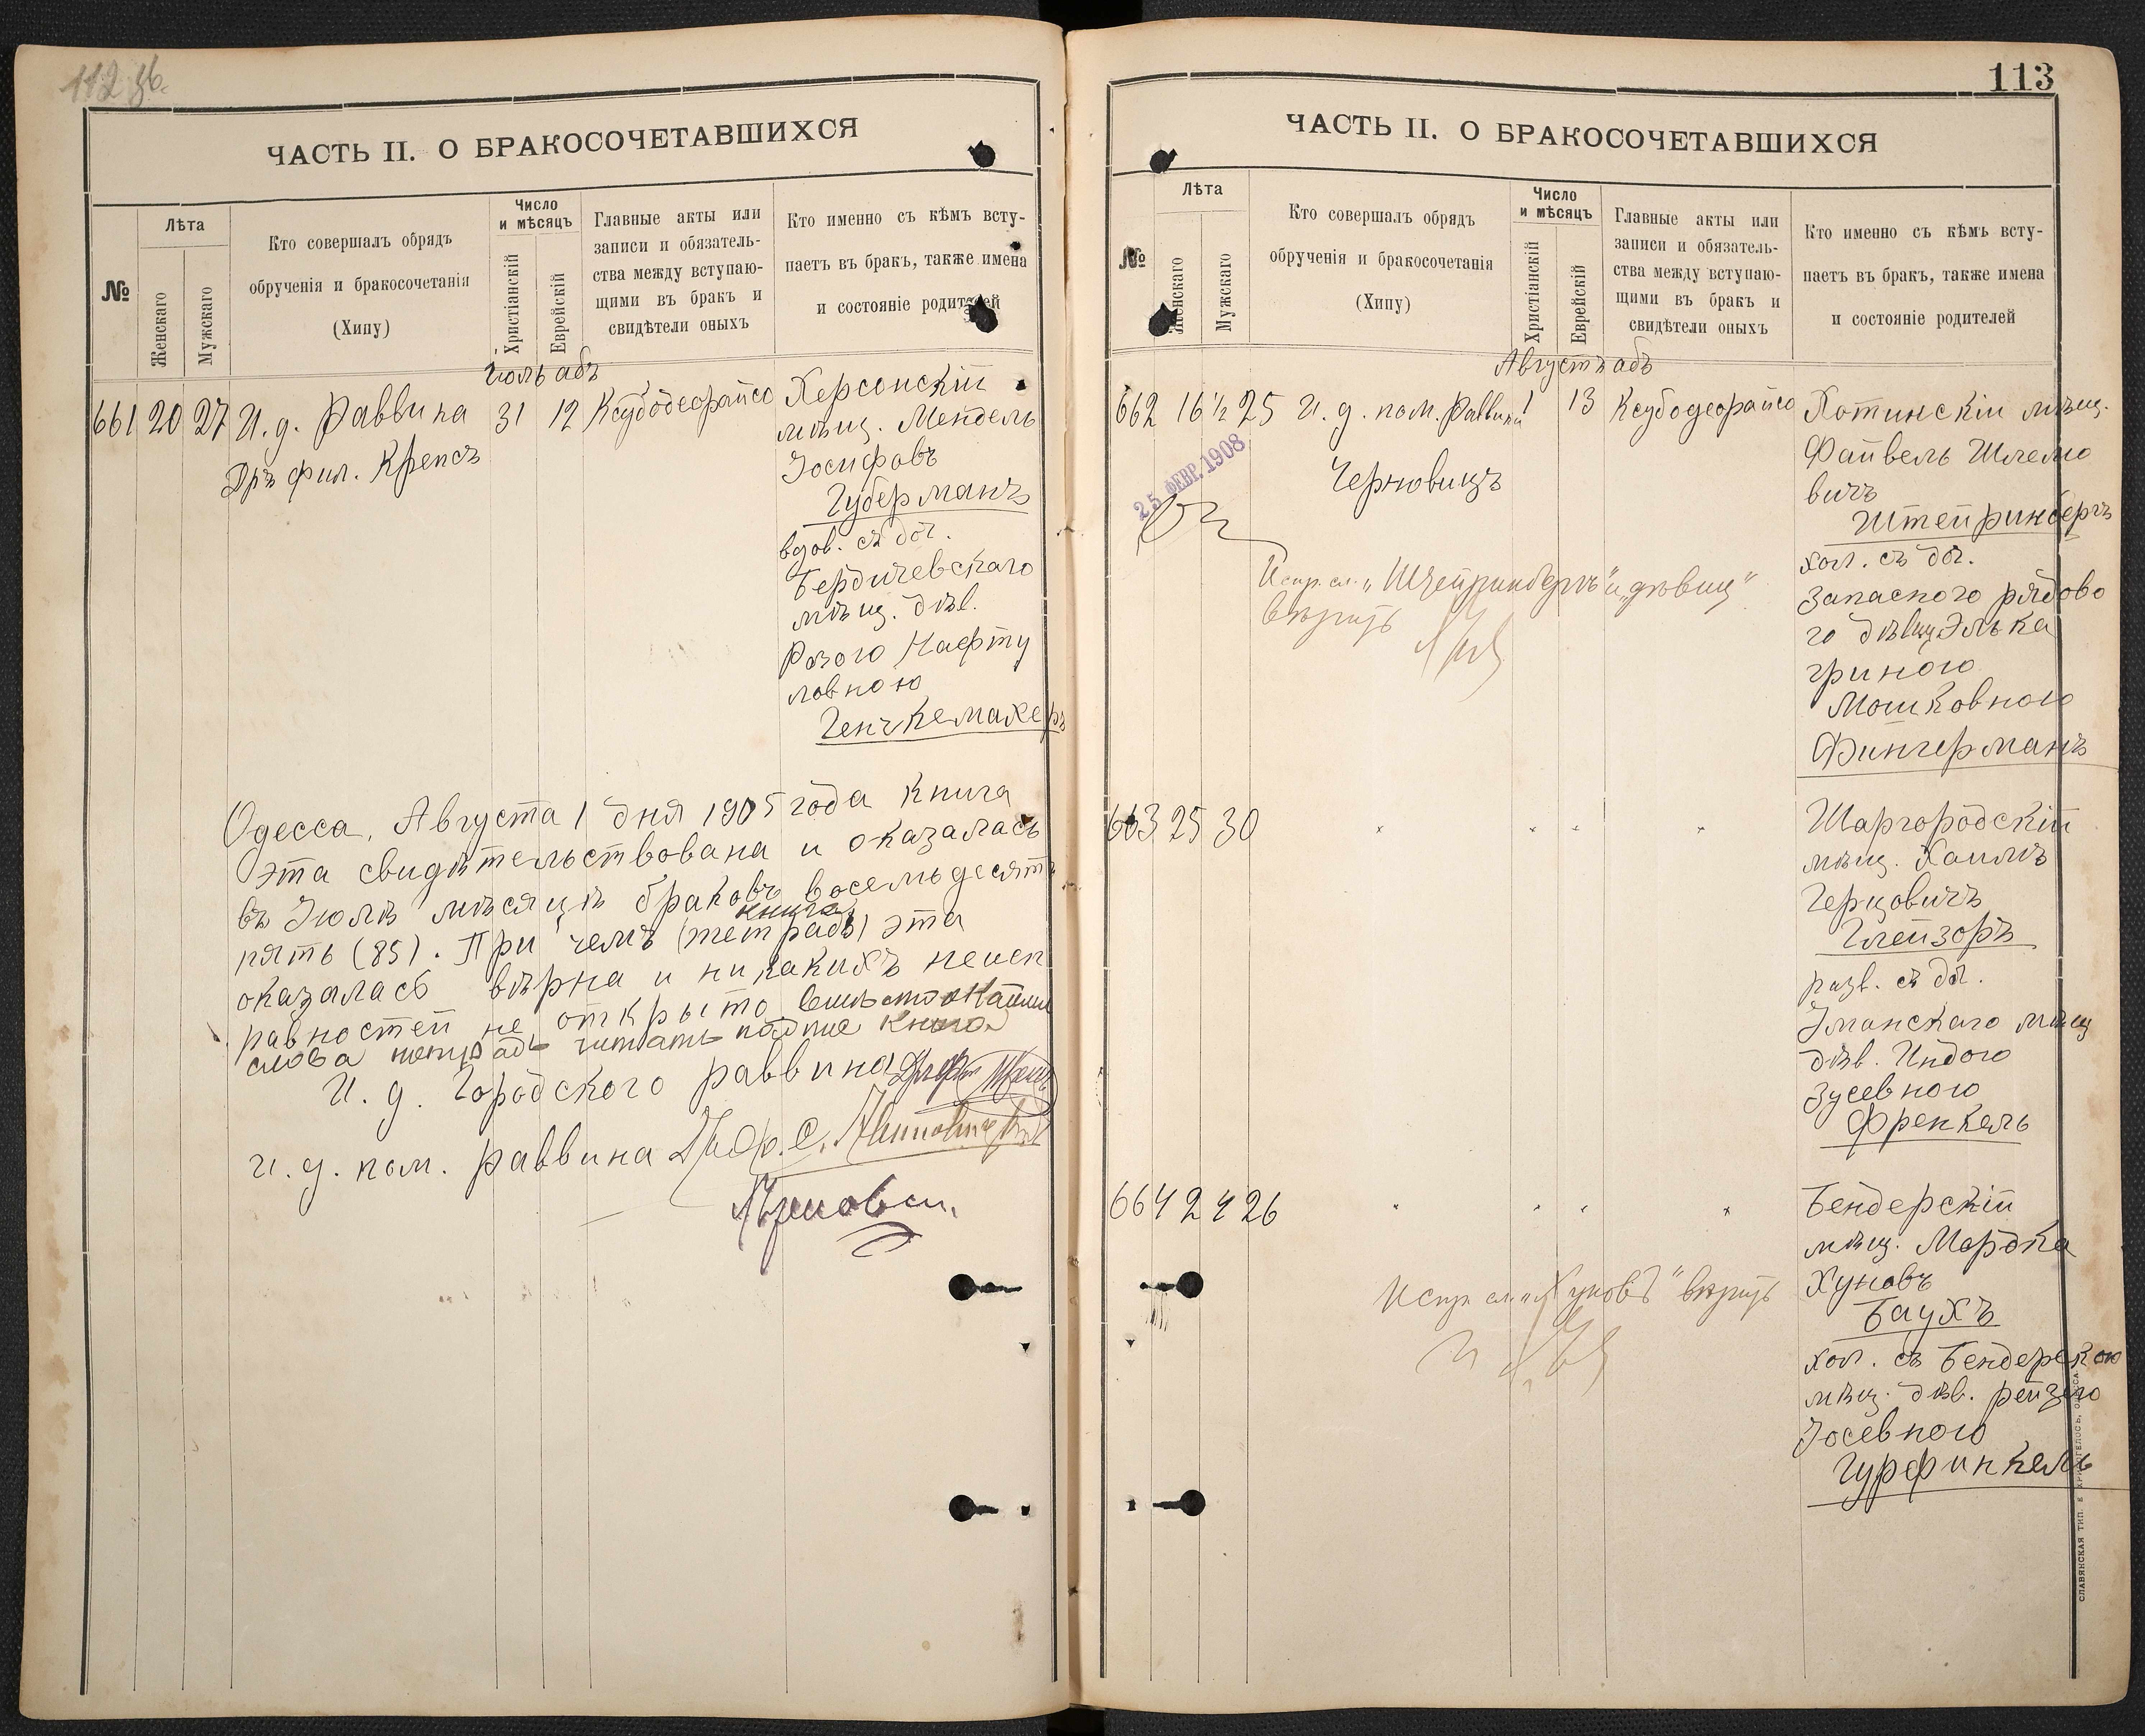 112 об.
ЧАСТЬ II. О БРАКОСОЧЕТАВШИХСЯ
№
Лѣта
Женскаго
Мужскаго
Кто совершалъ обрядъ
обрученія и бракосочетанія
(Хипу)
Число
и мѣсяцъ
Христіанскій
Еврейскій
Главные акты или
записи и обязатель-
ства между вступаю-
щими въ бракъ и
свидѣтели оныхъ
Кто именно съ кѣмъ всту-
паетъ въ бракъ, также имена
и состояніе родителей
Іюль абъ
661 20 27 И. д. Раввина 31 12 Ксубодеорайсо
Дръ фил. Крепсъ
Херсонскій
мѣщ. Мендель
Іосифовъ
Губерманъ
вдов. съ доч.
Бердичевскаго
мѣщ. дѣв.
Розою Нафту
ловною
Генчкемахеръ
Одесса, Августа 1 дня 1905 года книга
эта свидѣтельствована и оказалась
въ Іюлѣ мѣсяцѣ браковъ восемьдесятъ
пять (85). При чемъ (тетрадь) эта
книга
оказалась вѣрна и никакихъ неисп
равностей не открыто вмѣсто
слова тетрадь читать книга
И. д. Городского раввина
И. д. пом. раввина
113
ЧАСТЬ II. О БРАКОСОЧЕТАВШИХСЯ
№
Лѣта
Женскаго
Мужскаго
Кто совершалъ обрядъ
обрученія и бракосочетанія
(Хипу)
Число
и мѣсяцъ
Христіанскій
Еврейскій
Главные акты или
записи и обязатель-
ства между вступаю-
щими въ бракъ и
свидѣтели оныхъ
Кто именно съ кѣмъ всту-
паетъ въ бракъ, также имена
и состояніе родителей
Августъ абъ
662 16½ 25 И. д. пом. Раввина 1 13 Ксубодеорайсо
Черновицъ
25 ФЕВР. 1908
Испр. сл. „Штейринбергъ" и „дѣвиц"
вѣрить
Хотинскій мѣщ.
Файвель Шлемо
вичъ
Штейринбергъ
хол. съ доч.
запаснаго рядово
го дѣвиц Элька
гриною
Мошковною
Фингерманъ
663 25 30 " " " "
Шаргородскій
мѣщ. Хаимъ
Герцовичъ
Глейзоръ
разв. съ доч.
Уманскаго мѣщ
дѣв. Индою
Зусевною
Френкель
664 24 26 " " " "
Испр. сл. „Хуновъ" вѣрить
Бендерскій
мѣщ. Мордка
Хуновъ
Баухъ
хол. съ Бендерскою
мѣщ. дѣв. Рейзею
Іосевною
Гурфинкель
СЛАВЯНСКАЯ ТИП. Е. ХРИСОГЕЛОСЪ, ОДЕССА.